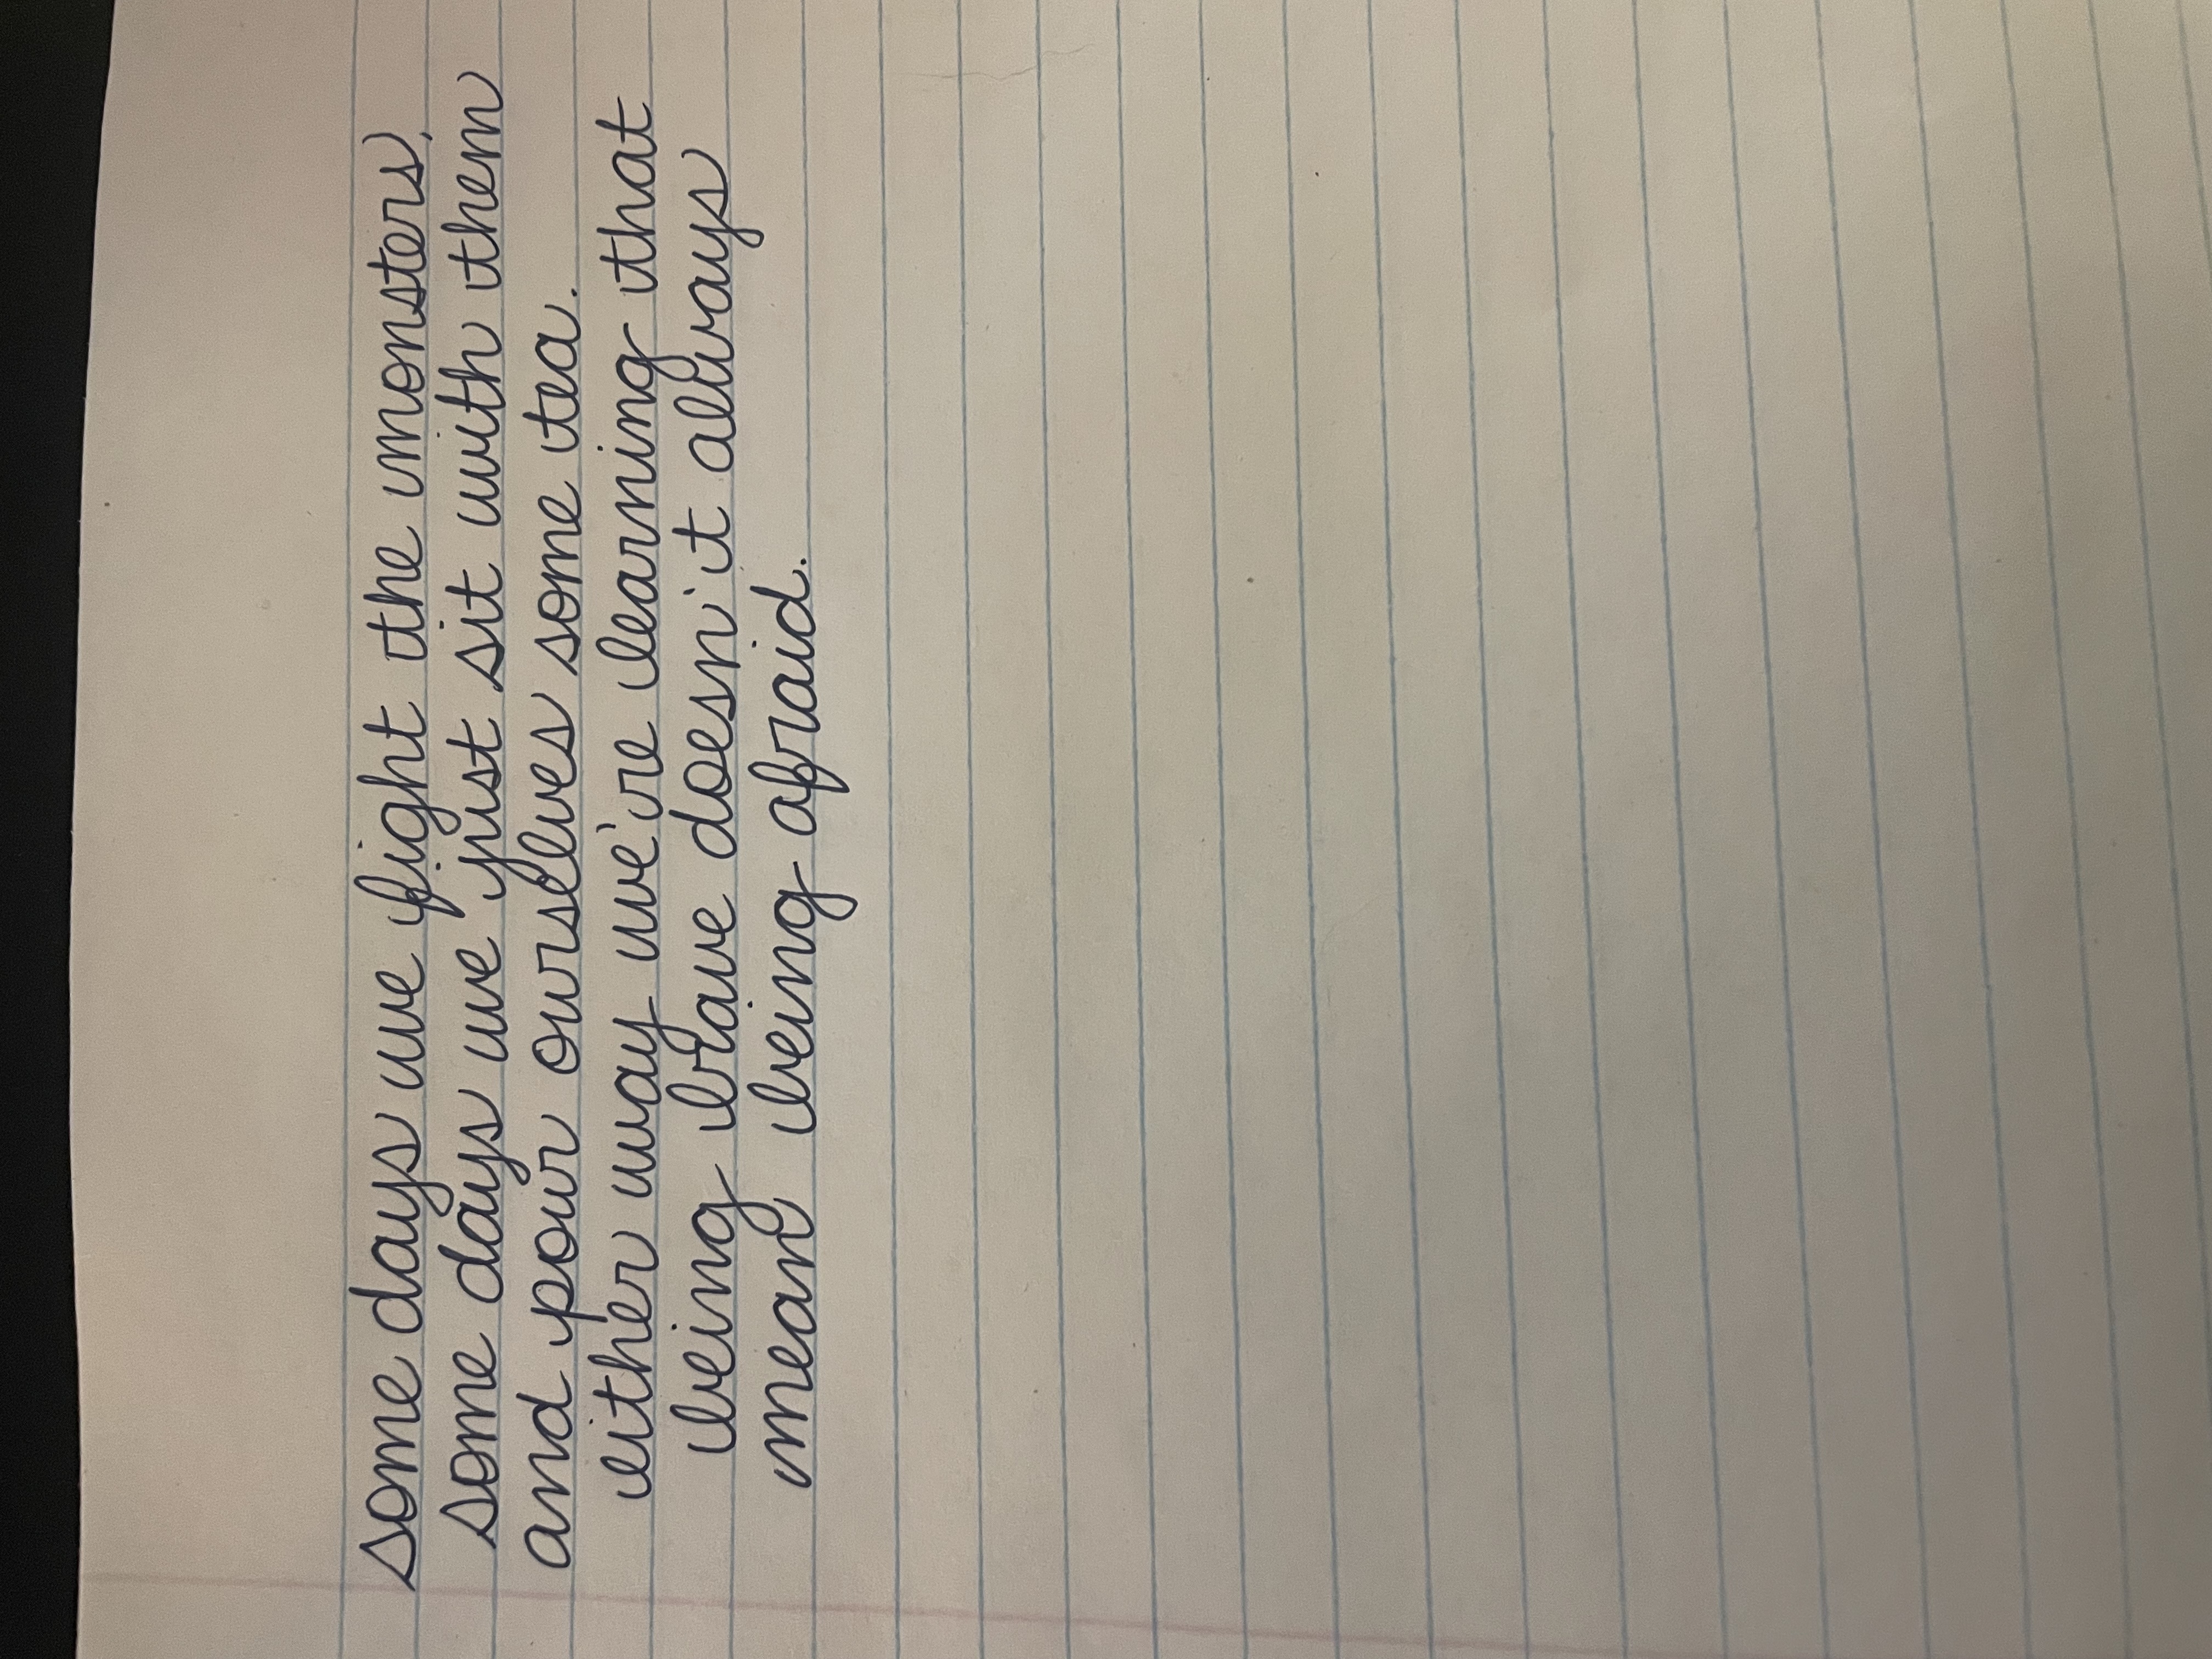 some days we fight the monsters,
some days we just sit with them
and pour ourselves some tea.
either way we're learning that
being brave doesn't always
mean being afraid.